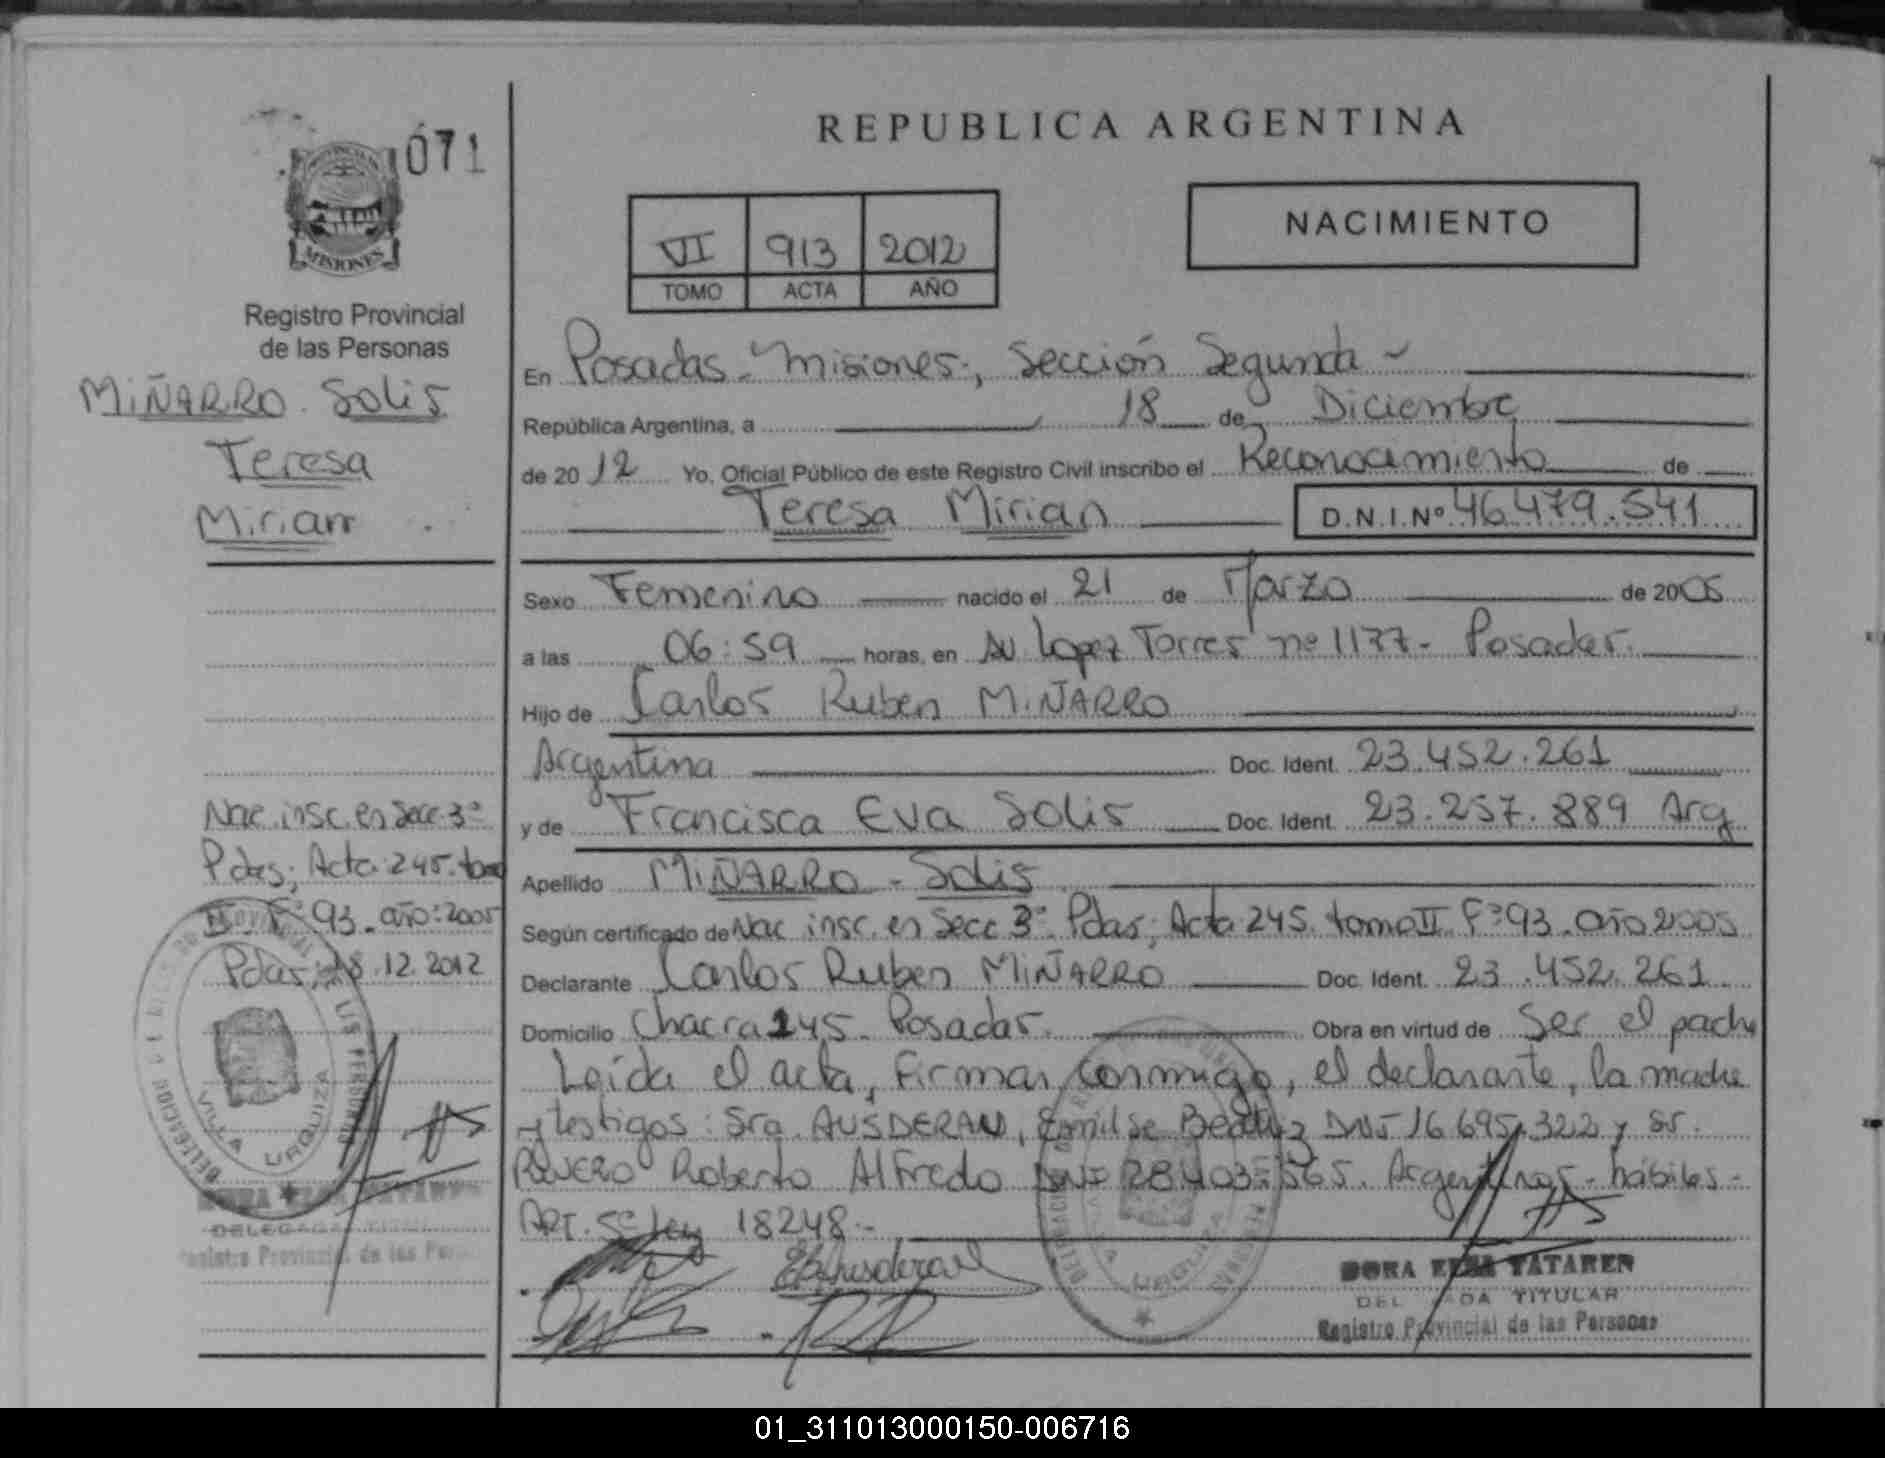 071
PROVINCIA DE
MISIONES
Registro Provincial
de las Personas
MIÑARRO. Solis
Teresa
Mirian
Nac. insc. en Secc. 3ª
Pdas; Acta 245. tomo
II F° 93. año: 2005
Pdas; 18.12.2012
VILLA URQUIZA
DORA ELBA TATAREN
DELEGADA TITULAR
Registro Provincial de las Personas
REPUBLICA ARGENTINA
VI 913 2012
TOMO ACTA AÑO
NACIMIENTO
En Posadas - Misiones, Sección Segunda
República Argentina, a 18 de Diciembre
de 2012 Yo, Oficial Público de este Registro Civil inscribo el Reconocimiento de
Teresa Mirian D.N.I.Nº 46.479.541
Sexo Femenino nacido el 21 de Marzo de 2005
a las 06:59 horas, en Av. Lopez Torres nº 1177- Posadas.
Hijo de Carlos Ruben MIÑARRO
Argentina Doc. Ident. 23.452.261
y de Francisca Eva Solis Doc. Ident. 23.257.889 Arg
Apellido MIÑARRO - Solis
Según certificado de Nac. insc. en Secc 3ª Pdas; Acta 245. tomo II F° 93. año 2005
Declarante Carlos Ruben MIÑARRO Doc. Ident. 23.452.261
Domicilio Chacra 145- Posadas. Obra en virtud de Ser el padre
Leída el acta, Firman conmigo, el declarante, la madre
y testigos: Sra. AUSDERAU, Emilse Beatriz DNI 16.695.322 y Sr.
RIVERO Roberto Alfredo DNI 28.403.565. Argentinos - hábiles -
ART. 5º Ley 18248.-
VILLA URQUIZA
DORA ELBA TATAREN
DELEGADA TITULAR
Registro Provincial de las Personas
01_311013000150-006716